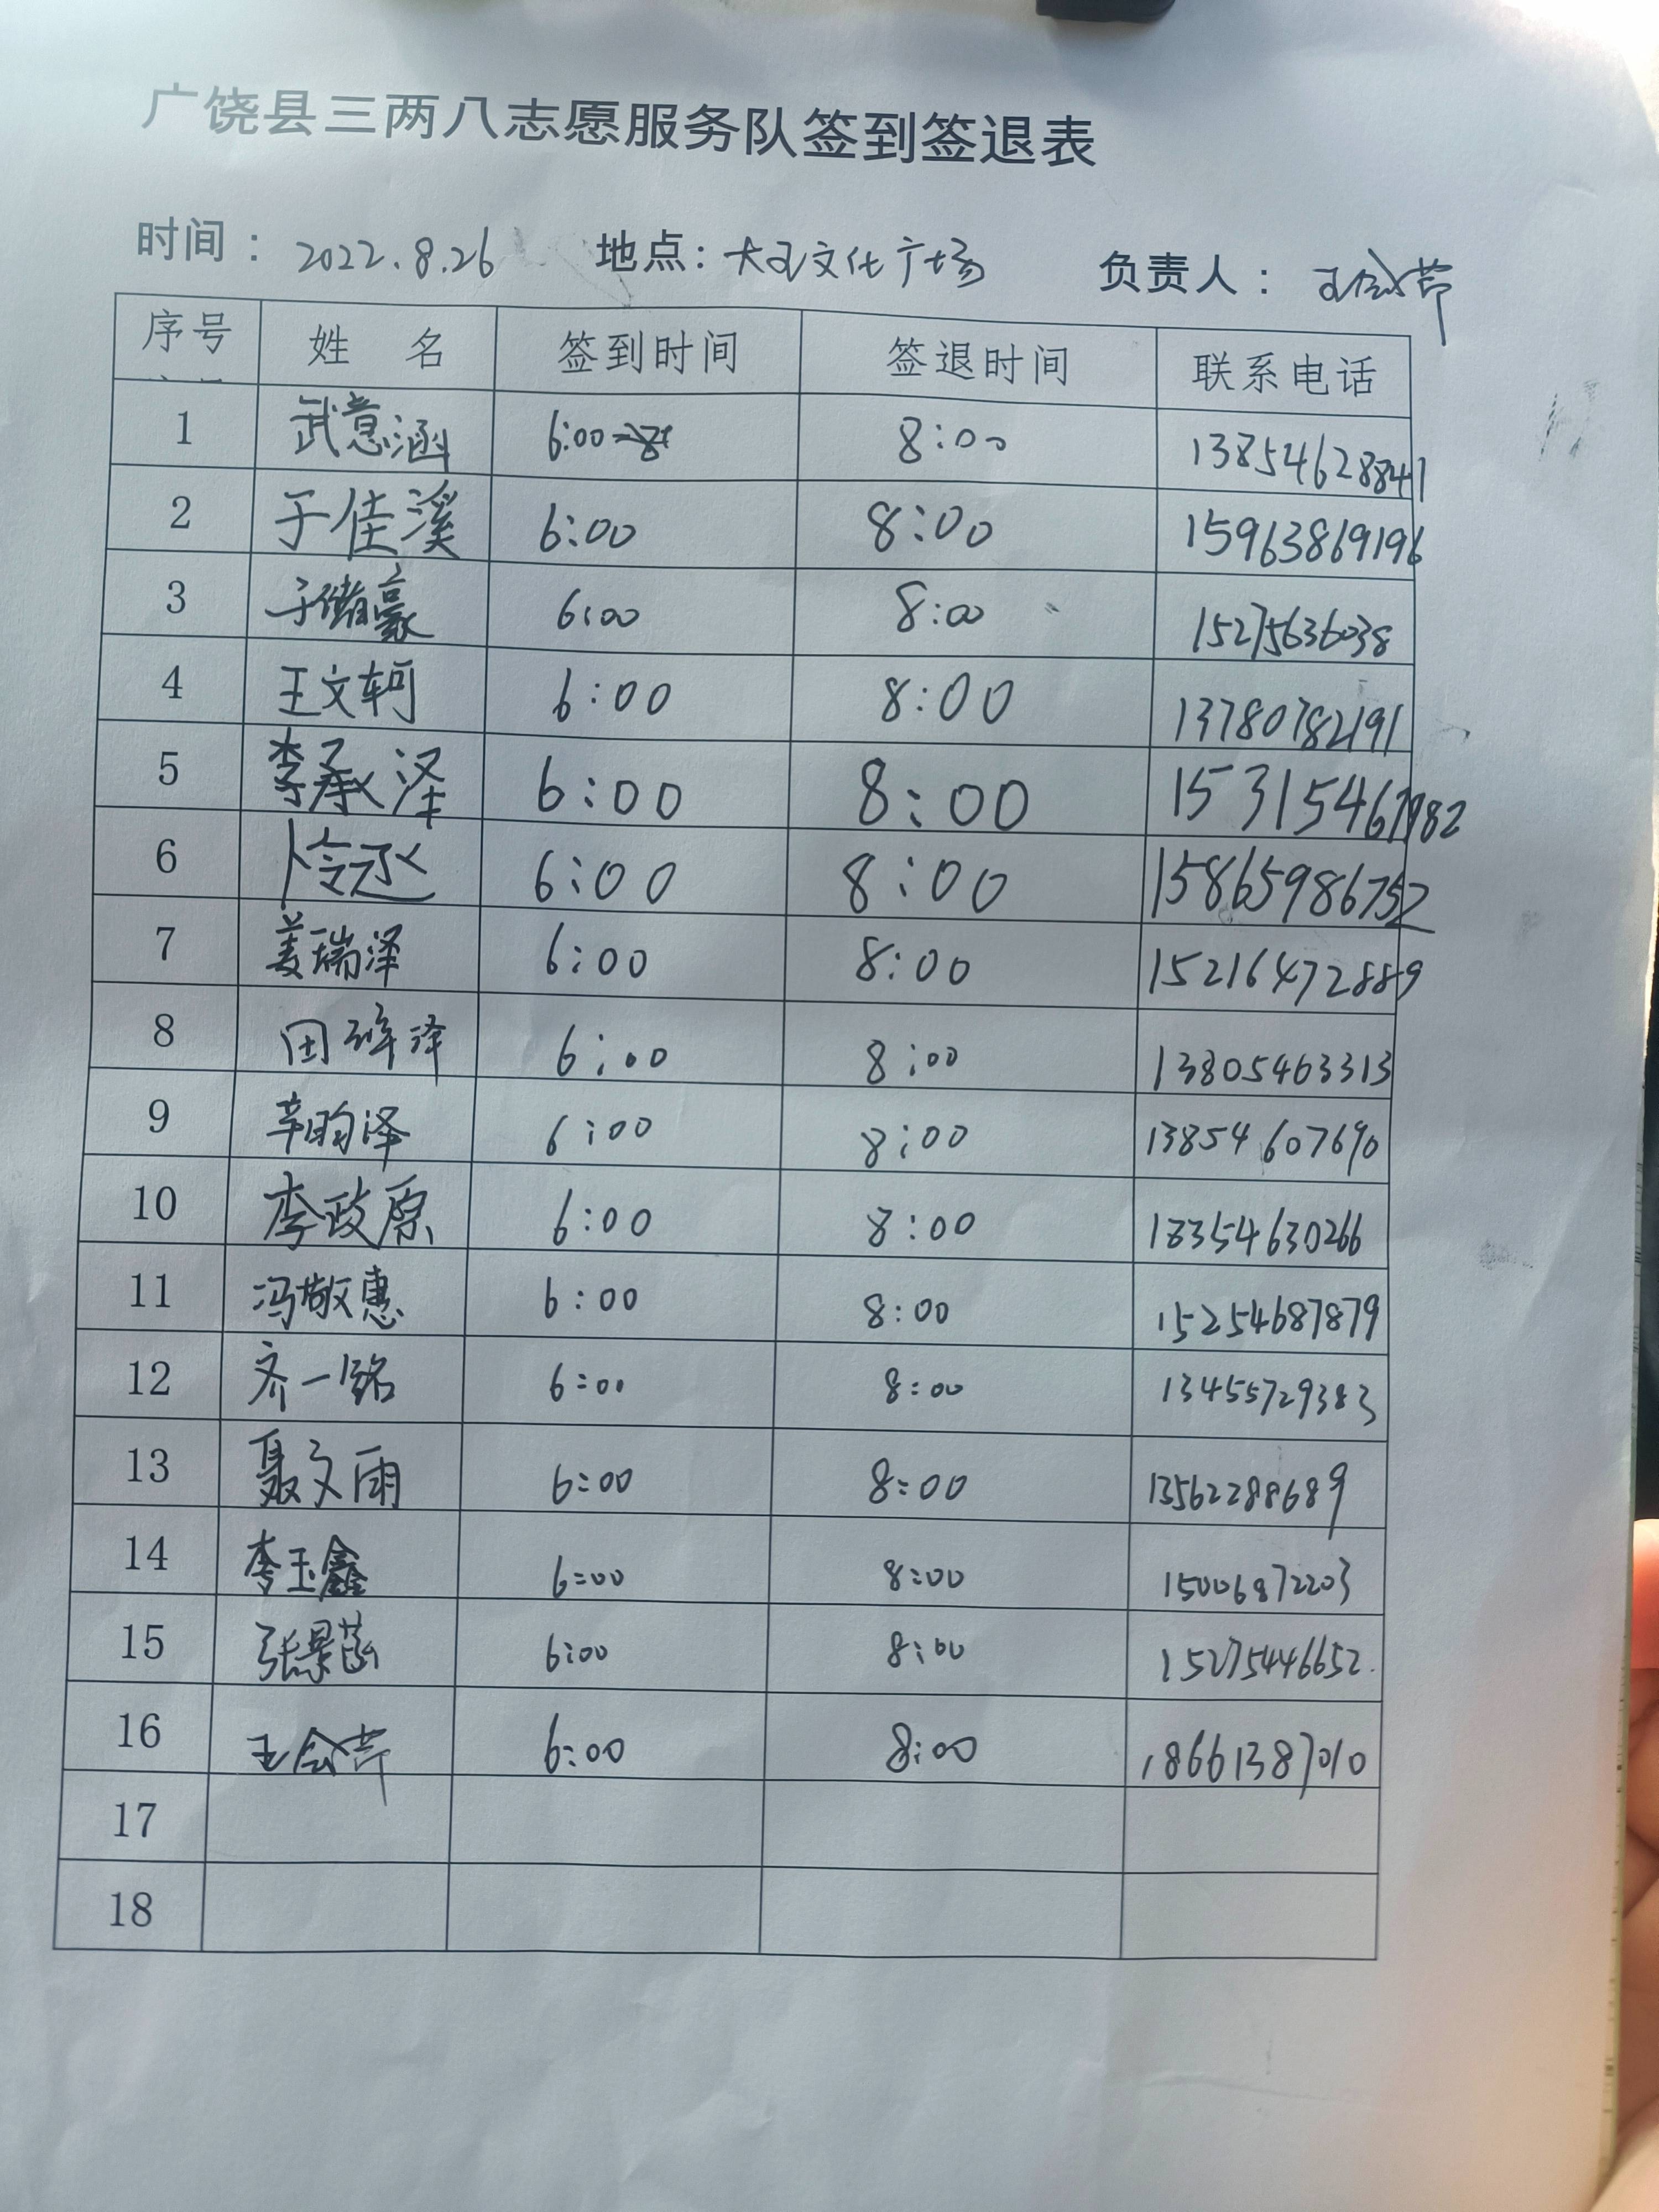 广饶县三两八志愿服务队签到签退表
时间： 2022.8.26 地点：大王文化广场 负责人： 王会芹
序号 姓 名 签到时间 签退时间 联系电话
1 武意涵 6:00 8:00 13854628841
2 于佳溪 6:00 8:00 15963869196
3 于储豪 6:00 8:00 15275636038
4 王文轲 6:00 8:00 13780782191
5 李承泽 6:00 8:00 15315467982
6 卜令丞 6:00 8:00 15865986752
7 姜瑞泽 6:00 8:00 15216472889
8 田 泽 6:00 8:00 13805463313
9 辛昀泽 6:00 8:00 13854607690
10 李政原 6:00 8:00 18354630266
11 冯敬惠 6:00 8:00 15254687879
12 齐一铭 6:00 8:00 13455729383
13 聂文雨 6:00 8:00 13562288689
14 李玉鑫 6:00 8:00 15006872203
15 张景菡 6:00 8:00 15275446652
16 王会芹 6:00 8:00 18661387010
17
18